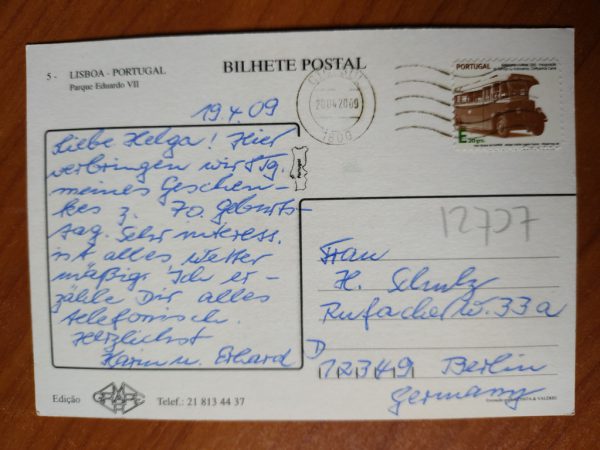 5 - LISBOA - PORTUGAL
Parque Eduardo VII
BILHETE POSTAL
PORTUGAL
E 20 gr.
20042009
1800
19.4.09
Liebe Helga! Hier
verbringen wir Tg.
meines Geschen-
kes z. 70. Geburts-
tag. Sehr interess.
alles wetter
mäßig. Ich er-
zähle Dir alles
telefonisch.
Herzlichst
Karin u. Erhard
12707
Frau
H. Schulz
33a
D
12349 Berlin
Germany
Edição
GRAFIPAPE
Telef.: 21 813 44 37